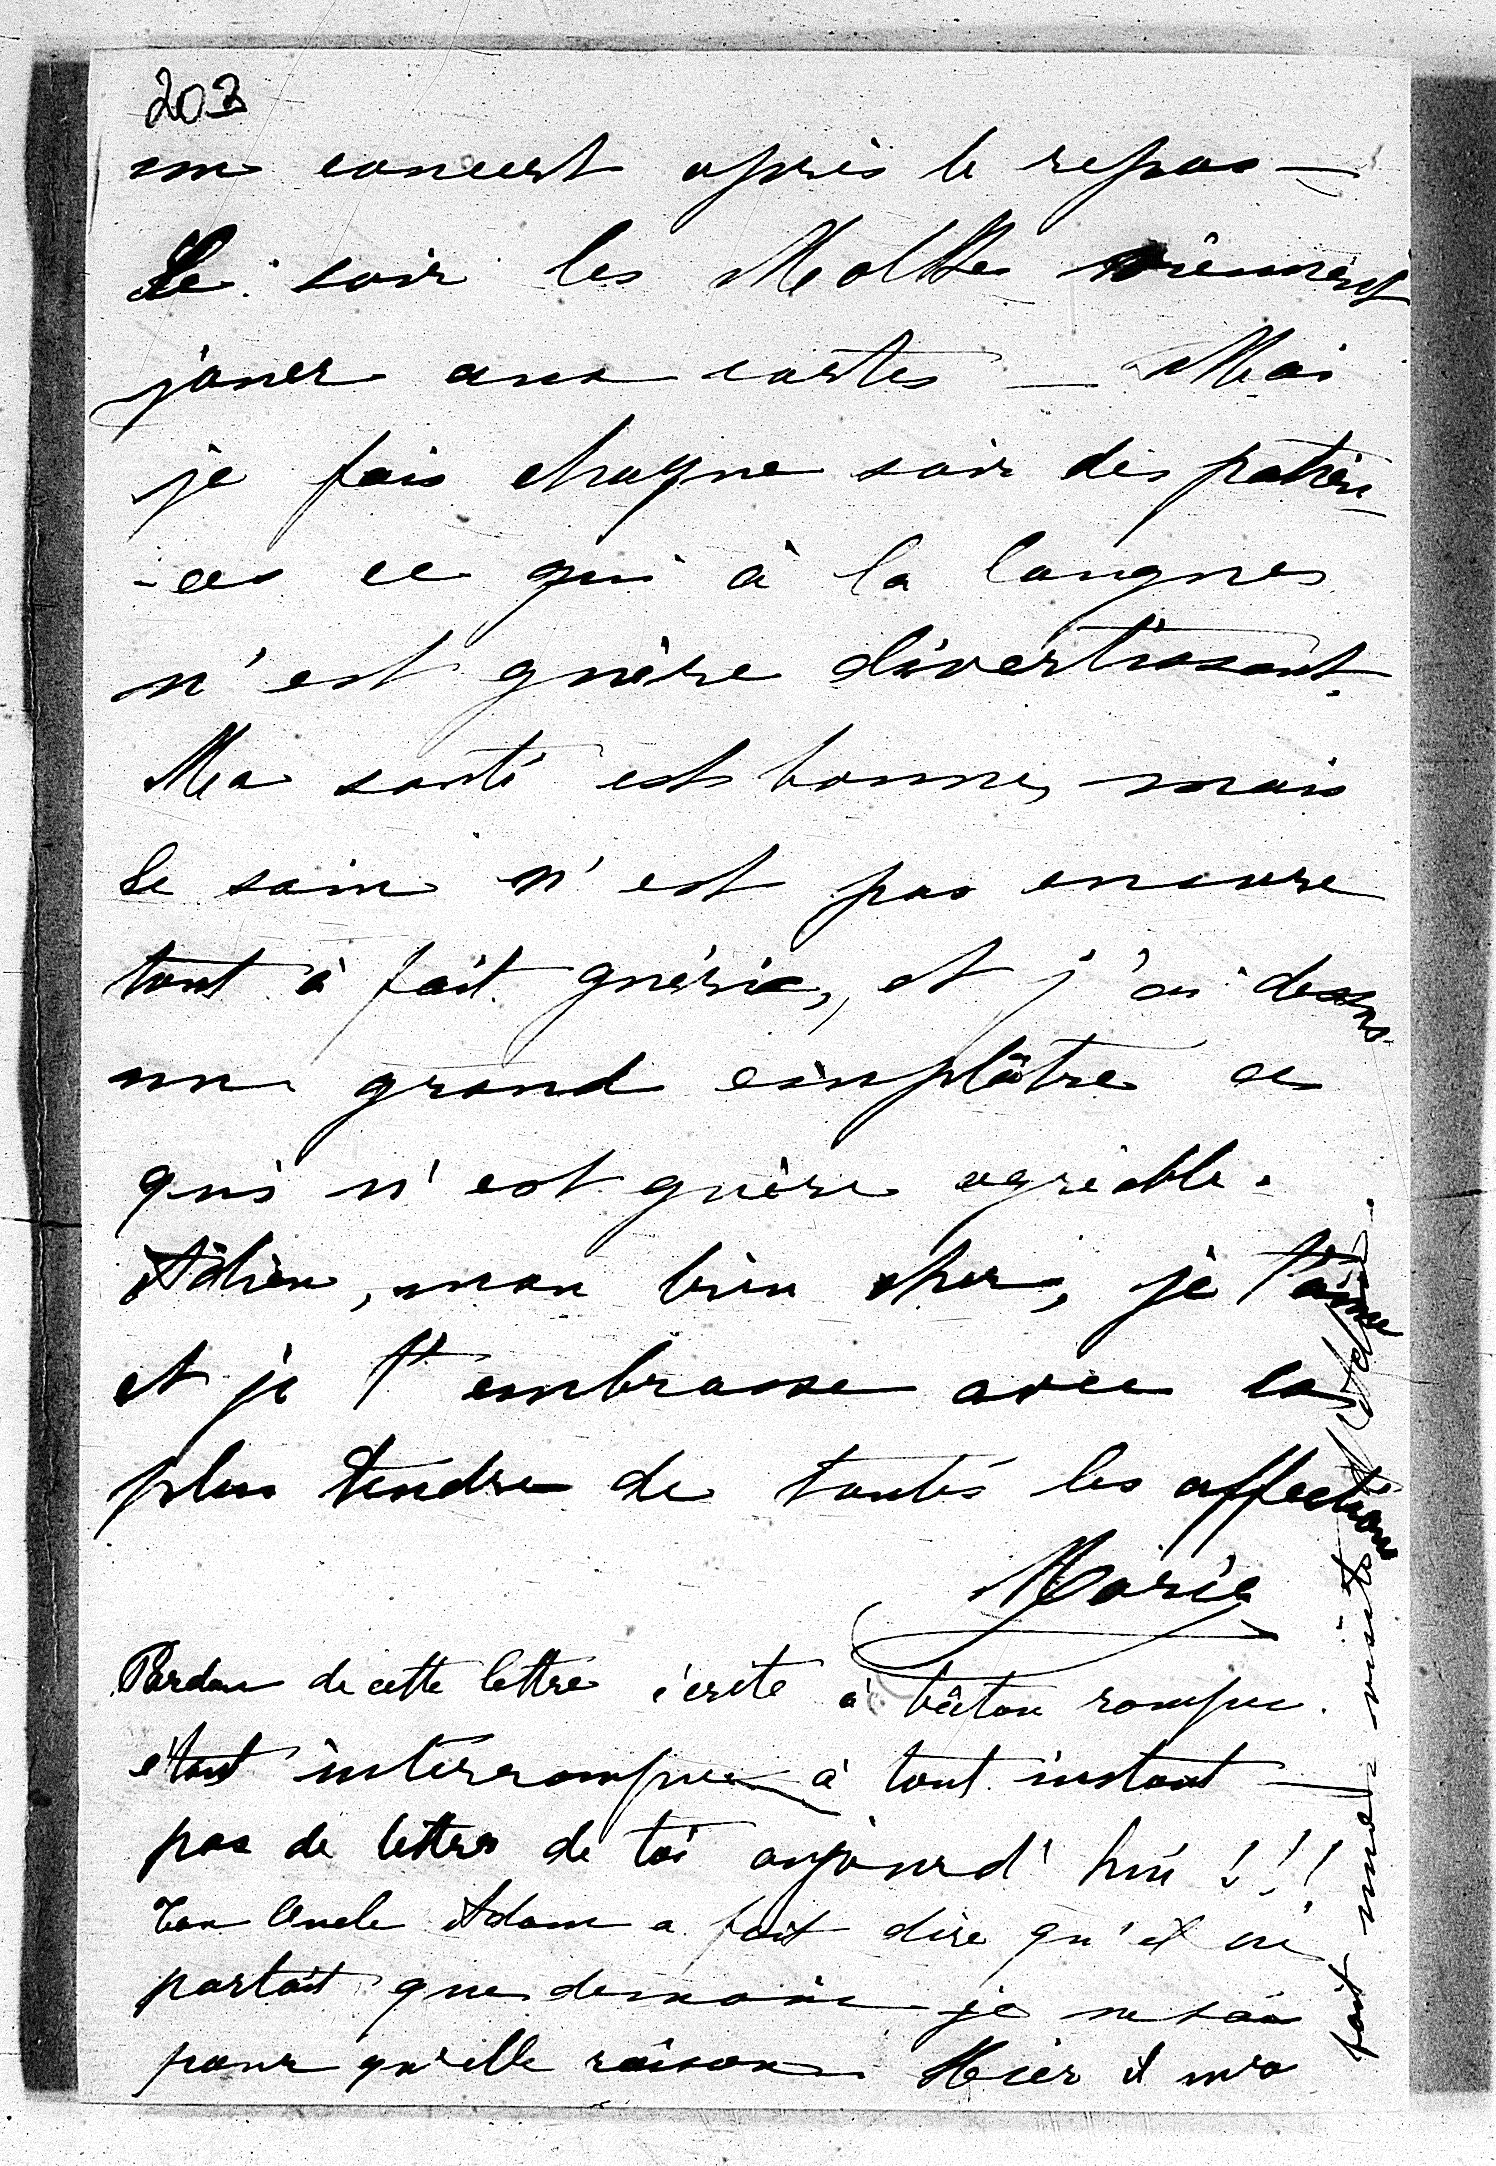 203
un concert après le repas —
Le soir les Moltke viennent
jouer aux cartes — Moi
je fais chaque soir des patien-
-ces ce qui à la longue
n'est guère divertissant.
Ma santé est bonne, mais
le sein n'est pas encore
tout à fait guéri, et j'ai dessus
un grand emplâtre ce
qui n'est guère agréable.
Adieu, mon bien cher, je t'aime
et je t'embrasse avec la
plus tendre de toutes les affections
Marie
Pardon de cette lettre écrite à bâton rompu.
étant interrompue à tout instant —
pas de lettre de toi aujourd'hui !!!
Ton Oncle Adam a fait dire qu'il ne
partait que demain je ne sais
pour quelle raison. Hier il m'a
fait une visite d'Adieu.